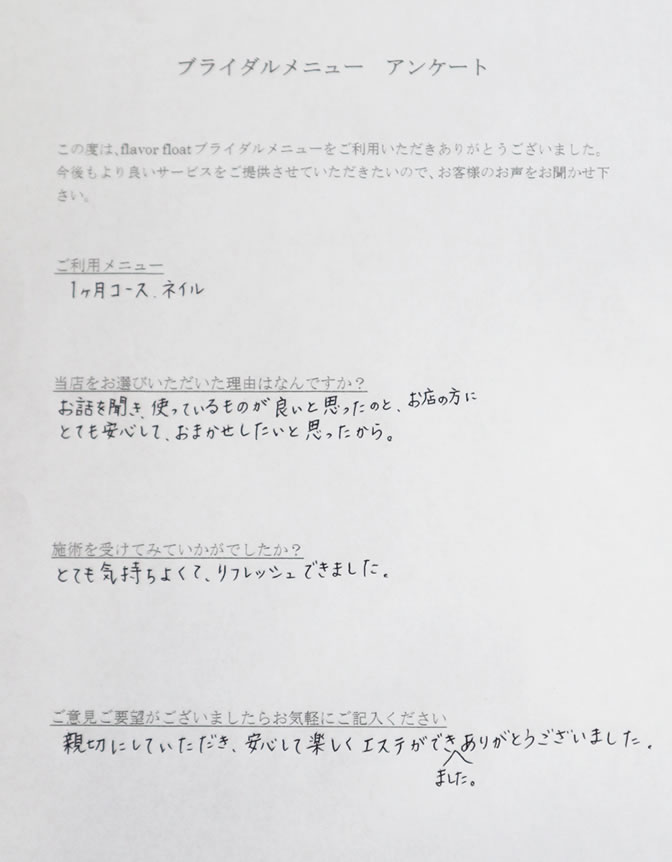 ブライダルメニュー　アンケート
この度は、flavor floatブライダルメニューをご利用いただきありがとうございました。
今後もより良いサービスをご提供させていただきたいので、お客様のお声をお聞かせ下
さい。
ご利用メニュー
1ヶ月コース、ネイル
当店をお選びいただいた理由はなんですか？
お話を聞き、使っているものが良いと思ったのと、お店の方に
とても安心して、おまかせしたいと思ったから。
施術を受けてみていかがでしたか？
とても気持ちよくて、リフレッシュできました。
ご意見ご要望がございましたらお気軽にご記入ください
親切にしていただき、安心して楽しくエステができありがとうございました。
ました。